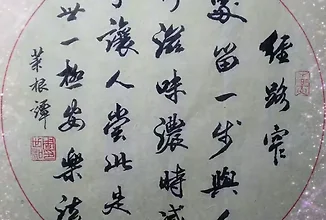 經路窄
處留一步與人
行滋味濃時減
讓人嘗此是
世一極安樂法
菜根譚